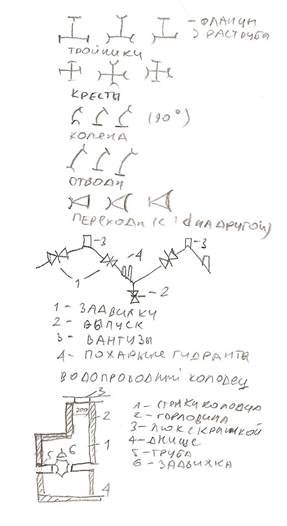 - ФЛАНЦЫ
) РАСТРУБА
ТРОЙНИКИ
КРЕСТЫ
(90°)
КОЛЕНА
ОТВОДЫ
ПЕРЕХОДЫ (С 1 d НА ДРУГОЙ)
3
4
3
1
2
1 - ЗАДВИЖКИ
2 - ВЫПУСК
3 - ВАНТУЗЫ
4 - ПОЖАРНЫЕ ГИДРАНТЫ
ВОДОПРОВОДНЫЙ КОЛОДЕЦ
3
700
2
1
5
6
4
1 - СТЕНКИ КОЛОДЦА
2 - ГОРЛОВИНА
3 - ЛЮК С КРЫШКОЙ
4 - ДНИЩЕ
5 - ТРУБА
6 - ЗАДВИЖКА